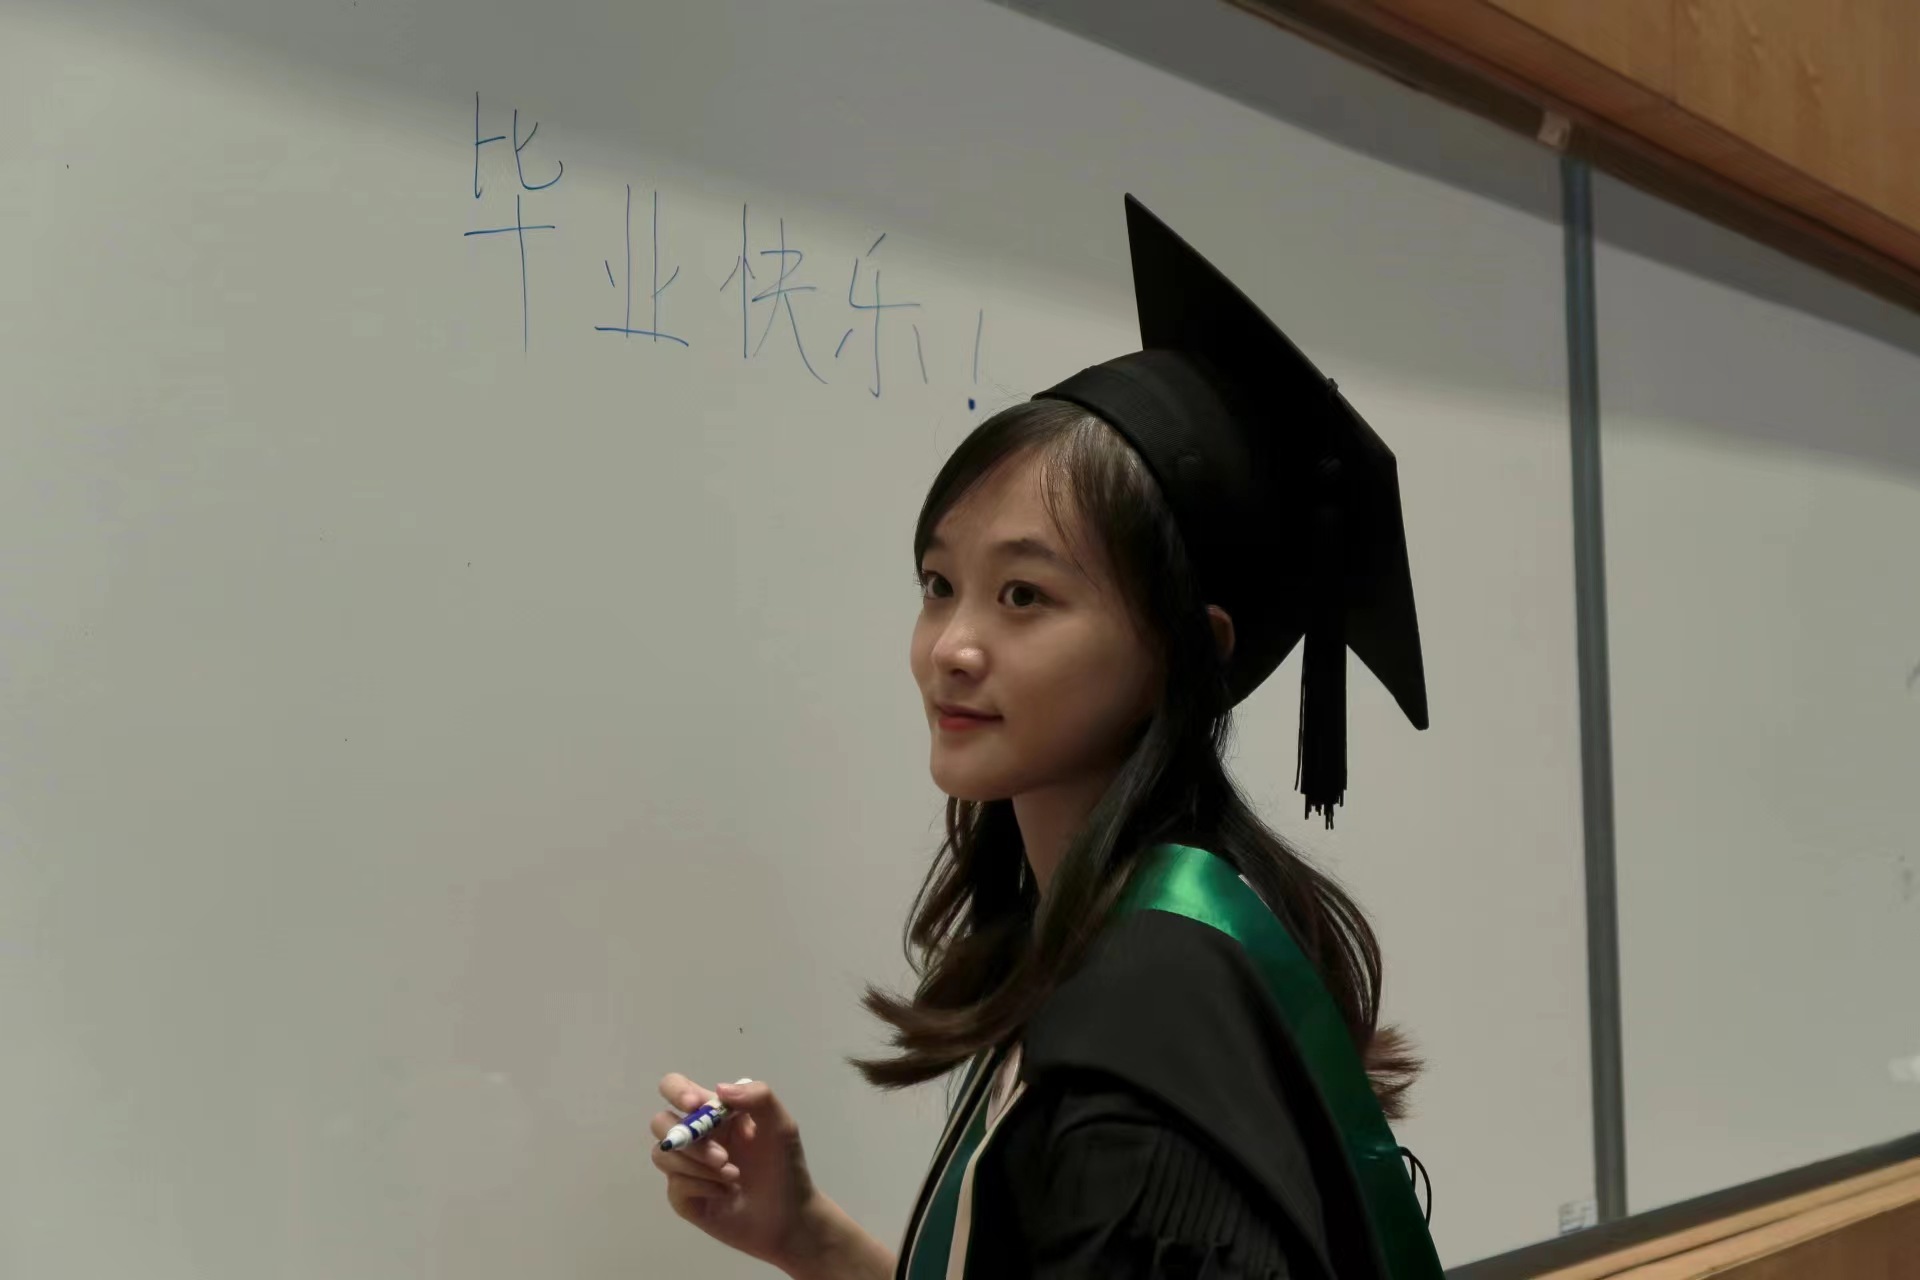 毕业快乐!